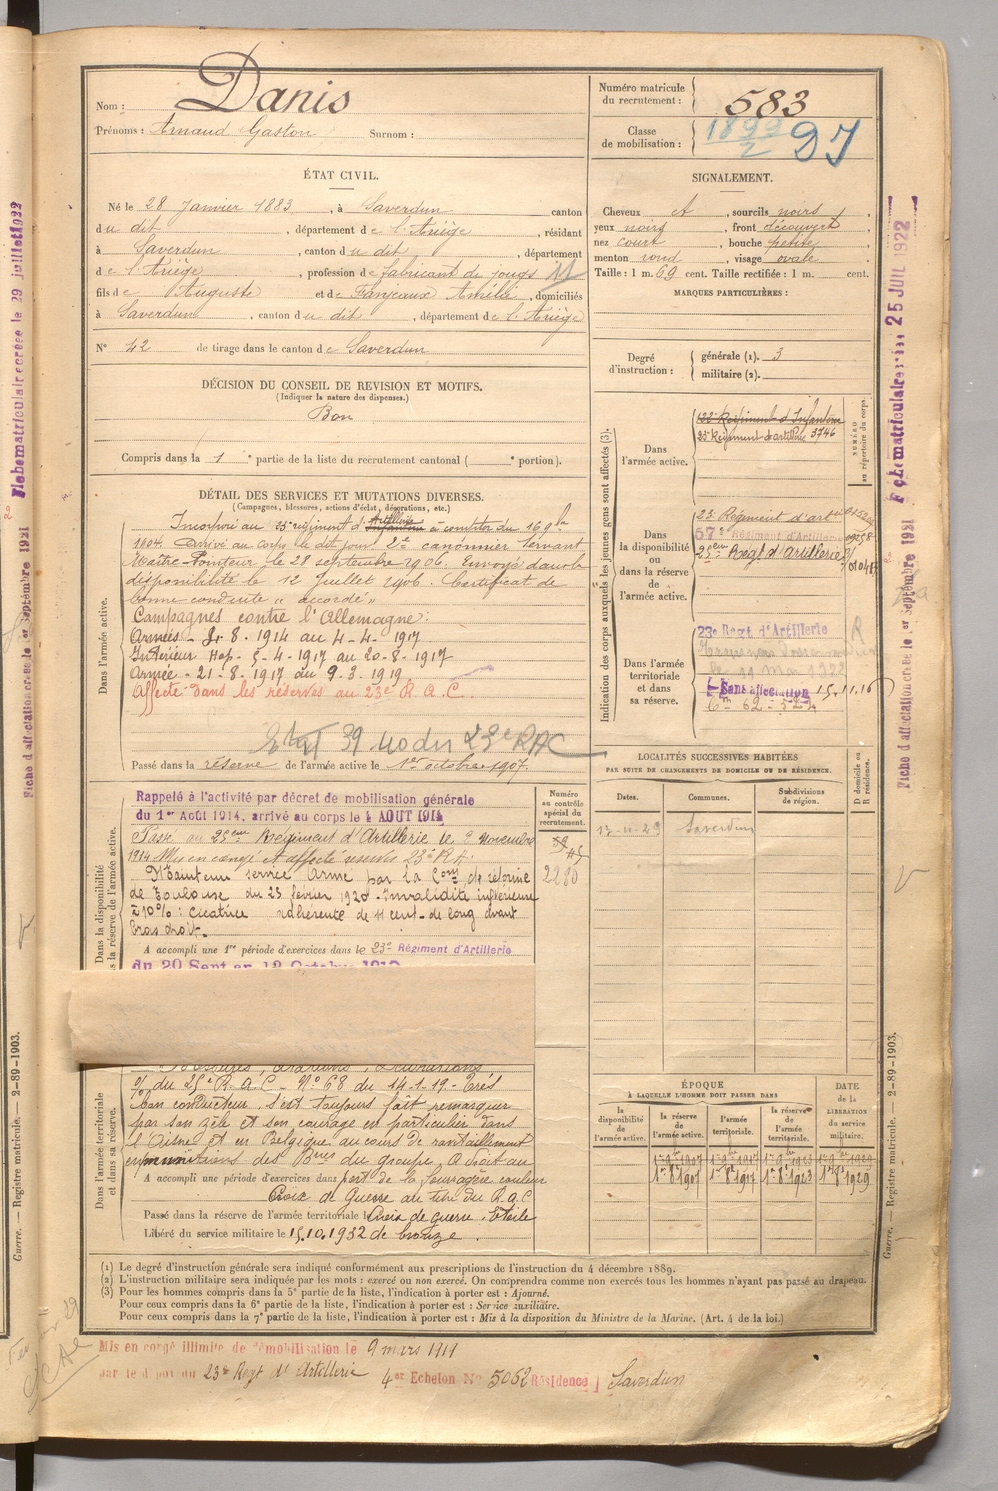 Nom : Danis
Prénoms : Arnaud Gaston Surnom :
ÉTAT CIVIL.
Né le 28 Janvier 1883, à Saverdun canton
du dit, département de l'Ariège, résidant
à Saverdun, canton du dit, département
de l'Ariège, profession de fabricant de jougs
fils de Auguste et de Fanjeaux Amélie, domiciliés
à Saverdun, canton du dit, département de l'Ariège
N° 42 de tirage dans le canton de Saverdun
DÉCISION DU CONSEIL DE REVISION ET MOTIFS.
(Indiquer la nature des dispenses.)
Bon
Compris dans la 1e partie de la liste du recrutement cantonal ( e portion).
Numéro matricule
du recrutement : 583
Classe
de mobilisation : 1899/2 97
SIGNALEMENT.
Cheveux , sourcils noirs,
yeux noirs, front découvert,
nez court, bouche petite,
menton rond, visage ovale
Taille : 1 m. 69 cent. Taille rectifiée : 1 m. cent.
MARQUES PARTICULIÈRES :
Degré
d'instruction :
générale (1). 3
militaire (2).
DÉTAIL DES SERVICES ET MUTATIONS DIVERSES.
(Campagnes, blessures, actions d'éclat, décorations, etc.)
Dans l'armée active.
Incorporé au régiment d'Infanterie Artillerie à compter du 16 9bre
1904. Arrivé au corps le dit jour 2e canonnier servant
Maître-Pointeur le 28 septembre 1906. Envoyé dans la
disponibilité le 12 Juillet 1906. Certificat de
bonne conduite "accordé"
Campagnes contre l'Allemagne :
Armées - 8 - 1914 au 4-4-1917
Intérieur Hop - 5-4-1917 au 20-8-1917
Armée - 21-8-1917 au 9-3-1919
Affecté dans les réserves au 23e R.A.C.
39 40 du 23e RAC
Passé dans la réserve de l'armée active le 1er octobre 1907.
Indication des corps auxquels les jeunes gens sont affectés (3).
Dans
l'armée active.
122e Régiment d'Infanterie
Régiment d'artillerie 3746
NUMÉRO
au répertoire du corps.
Dans
la disponibilité
ou
dans la réserve
de
l'armée active.
23e Régiment d'artie
57e Régiment d'Artillerie
25eme Regt d'Artillerie
Dans l'armée
territoriale
et dans
sa réserve.
23e Regt. d'Artillerie
Sans affectation 15.11.16
LOCALITÉS SUCCESSIVES HABITÉES
PAR SUITE DE CHANGEMENTS DE DOMICILE OU DE RÉSIDENCE.
Dates. Communes. Subdivisions
de région.
D domicile ou
R résidence.
Saverdun
Dans la disponibilité
la réserve de l'armée active.
Rappelé à l'activité par décret de mobilisation générale
du 1er Août 1914, arrivé au corps le 4 AOUT 1914
Passé au 25eme Régiment d'Artillerie le Novembre
1914 Mis en congé et affecté réserves 23e R.A.
Maintenu service armé par la Con de réforme
de Toulouse du 23 février 1920 - Invalidité inférieure
à 10% : cicatrice adhérente de 11 cent. de long avant
bras droit.
A accompli une 1re période d'exercices dans le 23e Régiment d'Artillerie
du 20 Sept au 12 Octobre 1910
Numéro
au contrôle
spécial du
recrutement.
2280
Dans l'armée territoriale
et dans sa réserve.
Blessures, citations, décorations
du 25e R.A.C - N° 68 du 14-1-19 - Très
bon conducteur, s'est toujours fait remarquer
par son zèle et son courage en particulier dans
l'Aisne et en Belgique au cours de ravitaillement
en munitions des Bries du groupe. A droit au
A accompli une période d'exercices dans port de la fourragère couleur
Croix de Guerre au titre du R.A.C
Passé dans la réserve de l'armée territoriale le Croix de guerre, Etoile
Libéré du service militaire le 15.10.1932 de bronze.
ÉPOQUE
À LAQUELLE L'HOMME DOIT PASSER DANS
la
disponibilité
de
l'armée active.
la réserve
de
l'armée active.
l'armée
territoriale.
la réserve
de
l'armée
territoriale.
DATE
de la
LIBÉRATION
du service
militaire.
1er 8bre 1907 1er 8bre 1917 1er 8bre 1923 1er 8bre 1929
(1) Le degré d'instruction générale sera indiqué conformément aux prescriptions de l'instruction du 4 décembre 1889.
(2) L'instruction militaire sera indiquée par les mots : exercé ou non exercé. On comprendra comme non exercés tous les hommes n'ayant pas passé au drapeau.
(3) Pour les hommes compris dans la 5e partie de la liste, l'indication à porter est : Ajourné.
Pour ceux compris dans la 6e partie de la liste, l'indication à porter est : Service auxiliaire.
Pour ceux compris dans la 7e partie de la liste, l'indication à porter est : Mis à la disposition du Ministre de la Marine. (Art. 4 de la loi.)
Mis en congé illimité de démobilisation le 9 mars 1919
par le dépôt du 23e Regt d'Artillerie 4e Echelon N° 5052 Résidence Saverdun
Fiche matriculaire créée le 29 juillet 1922
Fiche d'affectation créée le 1er Septembre 1921
Guerre. — Registre matricule. — 2-89-1903.
25 JUIL 1922
Fiche d'affectation créée le 1er Septembre 1921
Guerre. — Registre matricule. — 2-89-1903.